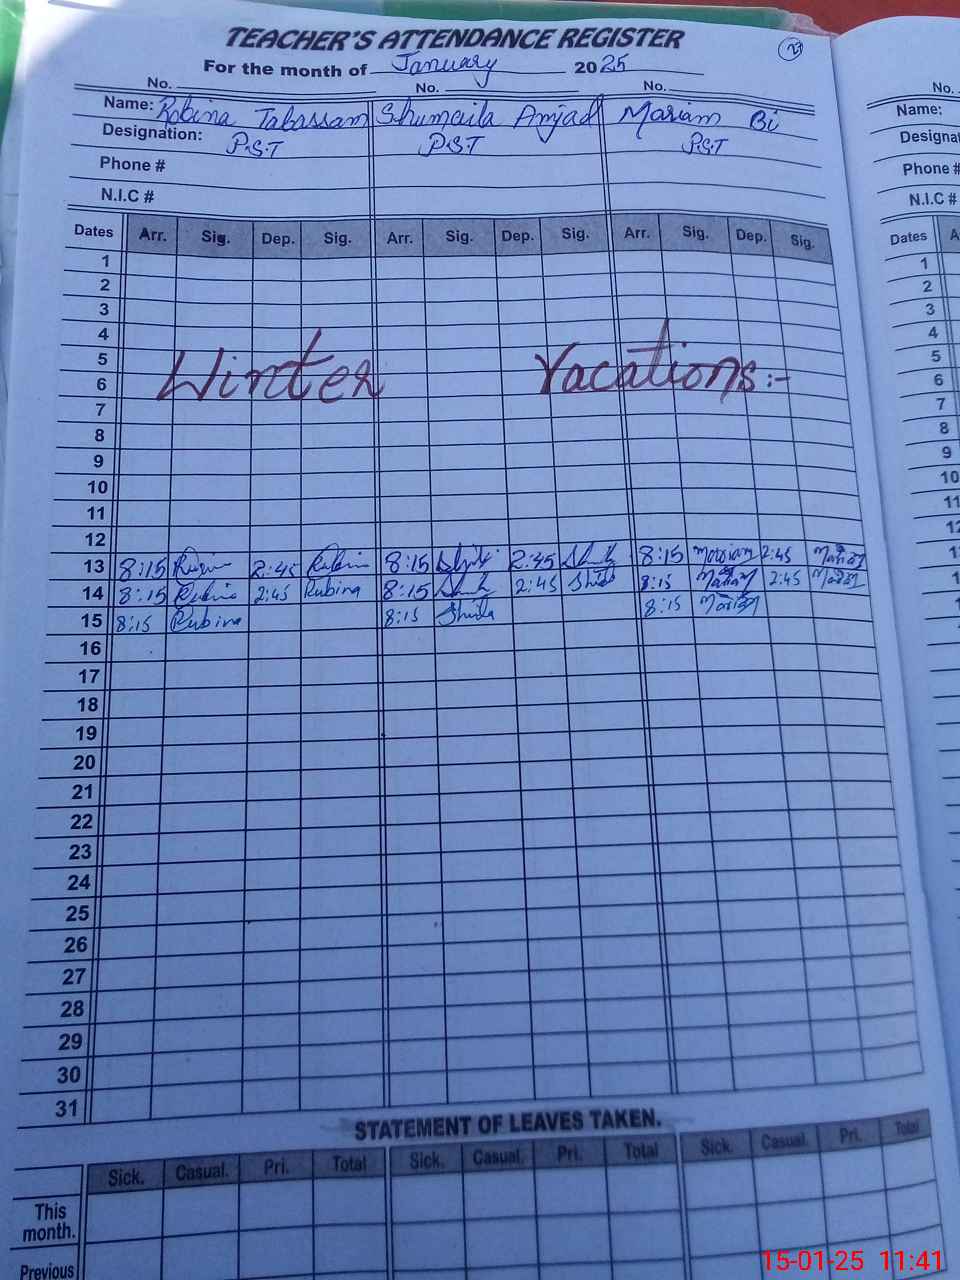 TEACHER'S ATTENDANCE REGISTER
29
For the month of January 2025
No. No. No. No.
Name: Robina Tabassam Shumaila Amjad Mariam Bi Name:
Designation: P.S.T P.S.T P.S.T Designa
Phone # Phone #
N.I.C # N.I.C #
Dates Arr. Sig. Dep. Sig. Arr. Sig. Dep. Sig. Arr. Sig. Dep. Sig. Dates A
1 1
2 2
3 3
4 4
5 5
Winter Vacations:-
6 6
7 7
8 8
9 9
10 10
11 11
12 12
13 8:15 2:45 8:15 2:45 8:15 Mariam 2:45
14 8:15 Rubina 2:45 Rubina 8:15 2:45 8:15 2:45
15 8:15 Rubina 8:15 8:15
16
17
18
19
20
21
22
23
24
25
26
27
28
29
30
31
STATEMENT OF LEAVES TAKEN.
Sick. Casual. Pri. Total Sick. Casual. Pri. Total Sick. Casual. Pri. Total
This
month.
Previous
15-01-25 11:41